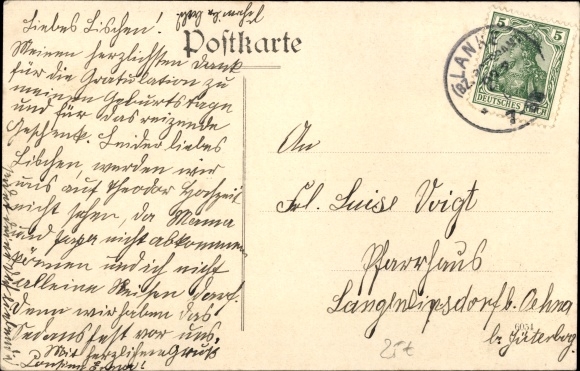 Liebes Lischen!
Meinen herzlichsten Dank
für die Gratulation zu
meinem Geburtstage
und für das reizende
Geschenk. Leider liebes
Lischen, werden wir
uns auf Theodor Hochzeit
nicht sehen, da Mama
und Papa nicht abkommen
können und ich nicht
alleine reisen darf.
Denn wir haben das
Sedansfest vor uns.
Mit herzlichem Gruß
Postkarte
5 5
DEUTSCHES REICH
LANKE
An
Frl. Luise Voigt
Pfarrhaus
Langenlipsdorf b. Oehna
6051
b. Jüterbog.